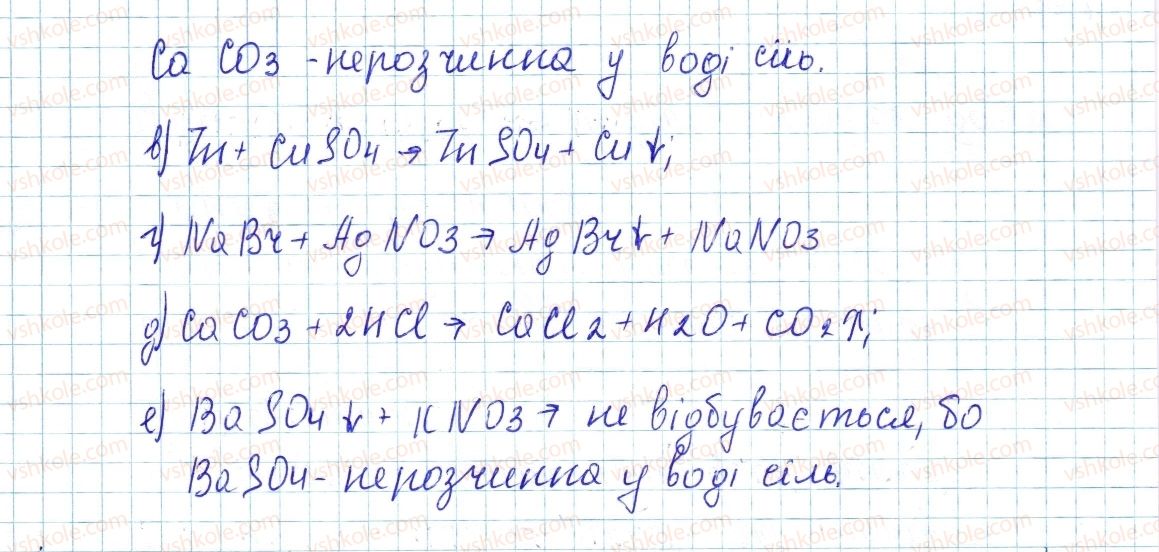 CaCO3 - нерозчинна у воді сіль.
в) Zn + CuSO4 → ZnSO4 + Cu↓;
г) NaBr + AgNO3 → AgBr↓ + NaNO3
д) CaCO3 + 2HCl → CaCl2 + H2O + CO2↑;
е) BaSO4↓ + KNO3 → не відбувається, бо
BaSO4 - нерозчинна у воді сіль.